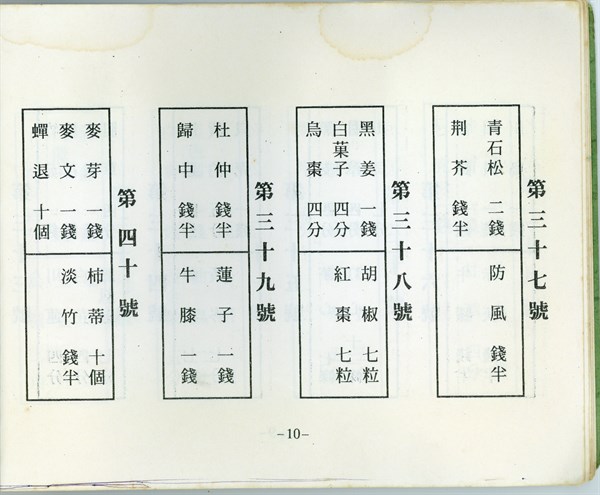 第三十七號
青石松 二錢
荆芥 錢半
防風 錢半
第三十八號
黑姜 一錢
白菓子 四分
烏棗 四分
胡椒 七粒
紅棗 七粒
第三十九號
杜仲 錢半
歸中 錢半
蓮子 一錢
牛膝 一錢
第四十號
麥芽 一錢
麥文 一錢
蟬退 十個
柿蒂 十個
淡竹 錢半
-10-